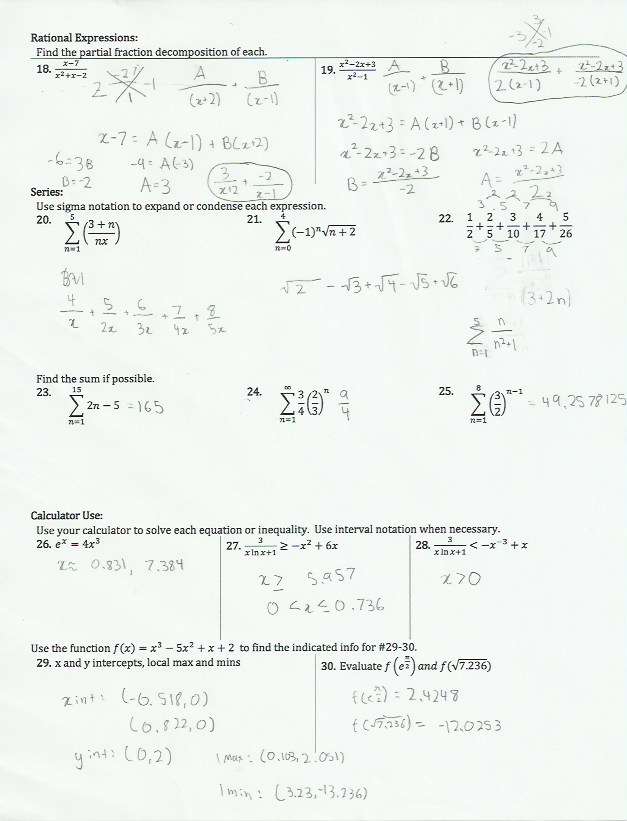 Rational Expressions:
Find the partial fraction decomposition of each.
18. x−7/x²+x−2
-2
2 -1
1
A/(x+2) + B/(x−1)
x−7 = A(x−1) + B(x+2)
-6=3B -9=A(-3)
B=-2 A=3
3/x+2 + -2/x−1
19. x²−2x+3/x²−1
A/(x−1) + B/(x+1)
x²−2x+3/2(x−1) + x²−2x+3/-2(x+1)
x²−2x+3 = A(x+1) + B(x−1)
x²−2x+3 = -2B x²−2x+3 = 2A
B = x²−2x+3/-2 A = x²−2x+3/2
Series:
Use sigma notation to expand or condense each expression.
20. 5 ∑ n=1 (3+n/nx)
4/x + 5/2x + 6/3x + 7/4x + 8/5x
21. 4 ∑ n=0 (−1)ⁿ√n+2
√2 − √3 + √4 − √5 + √6
3 5 7 9
22. 1/2 + 2/5 + 3/10 + 4/17 + 5/26
3 5 7 9
(3+2n)
5 ∑ n=1 n/n²+1
Find the sum if possible.
23. 15 ∑ n=1 2n−5 =165
24. ∞ ∑ n=1 3/4(2/3)ⁿ 9/4
25. 8 ∑ n=1 (3/2)ⁿ⁻¹ = 49.2578125
Calculator Use:
Use your calculator to solve each equation or inequality. Use interval notation when necessary.
26. eˣ = 4x³
x≈ 0.831, 7.384
27. 3/x ln x+1 ≥ −x² + 6x
x ≥ 5.957
0 < x ≤ 0.736
28. 3/x ln x+1 < −x⁻³ + x
x>0
Use the function f(x) = x³ − 5x² + x + 2 to find the indicated info for #29-30.
29. x and y intercepts, local max and mins
x int: (-0.518,0)
(0.822,0)
y int: (0,2) l max: (0.103,2.051)
l min: (3.23,-13.236)
30. Evaluate f(e^π/2) and f(√7.236)
f(e^π/2) = 2.4248
f(√7.236) = -12.0253